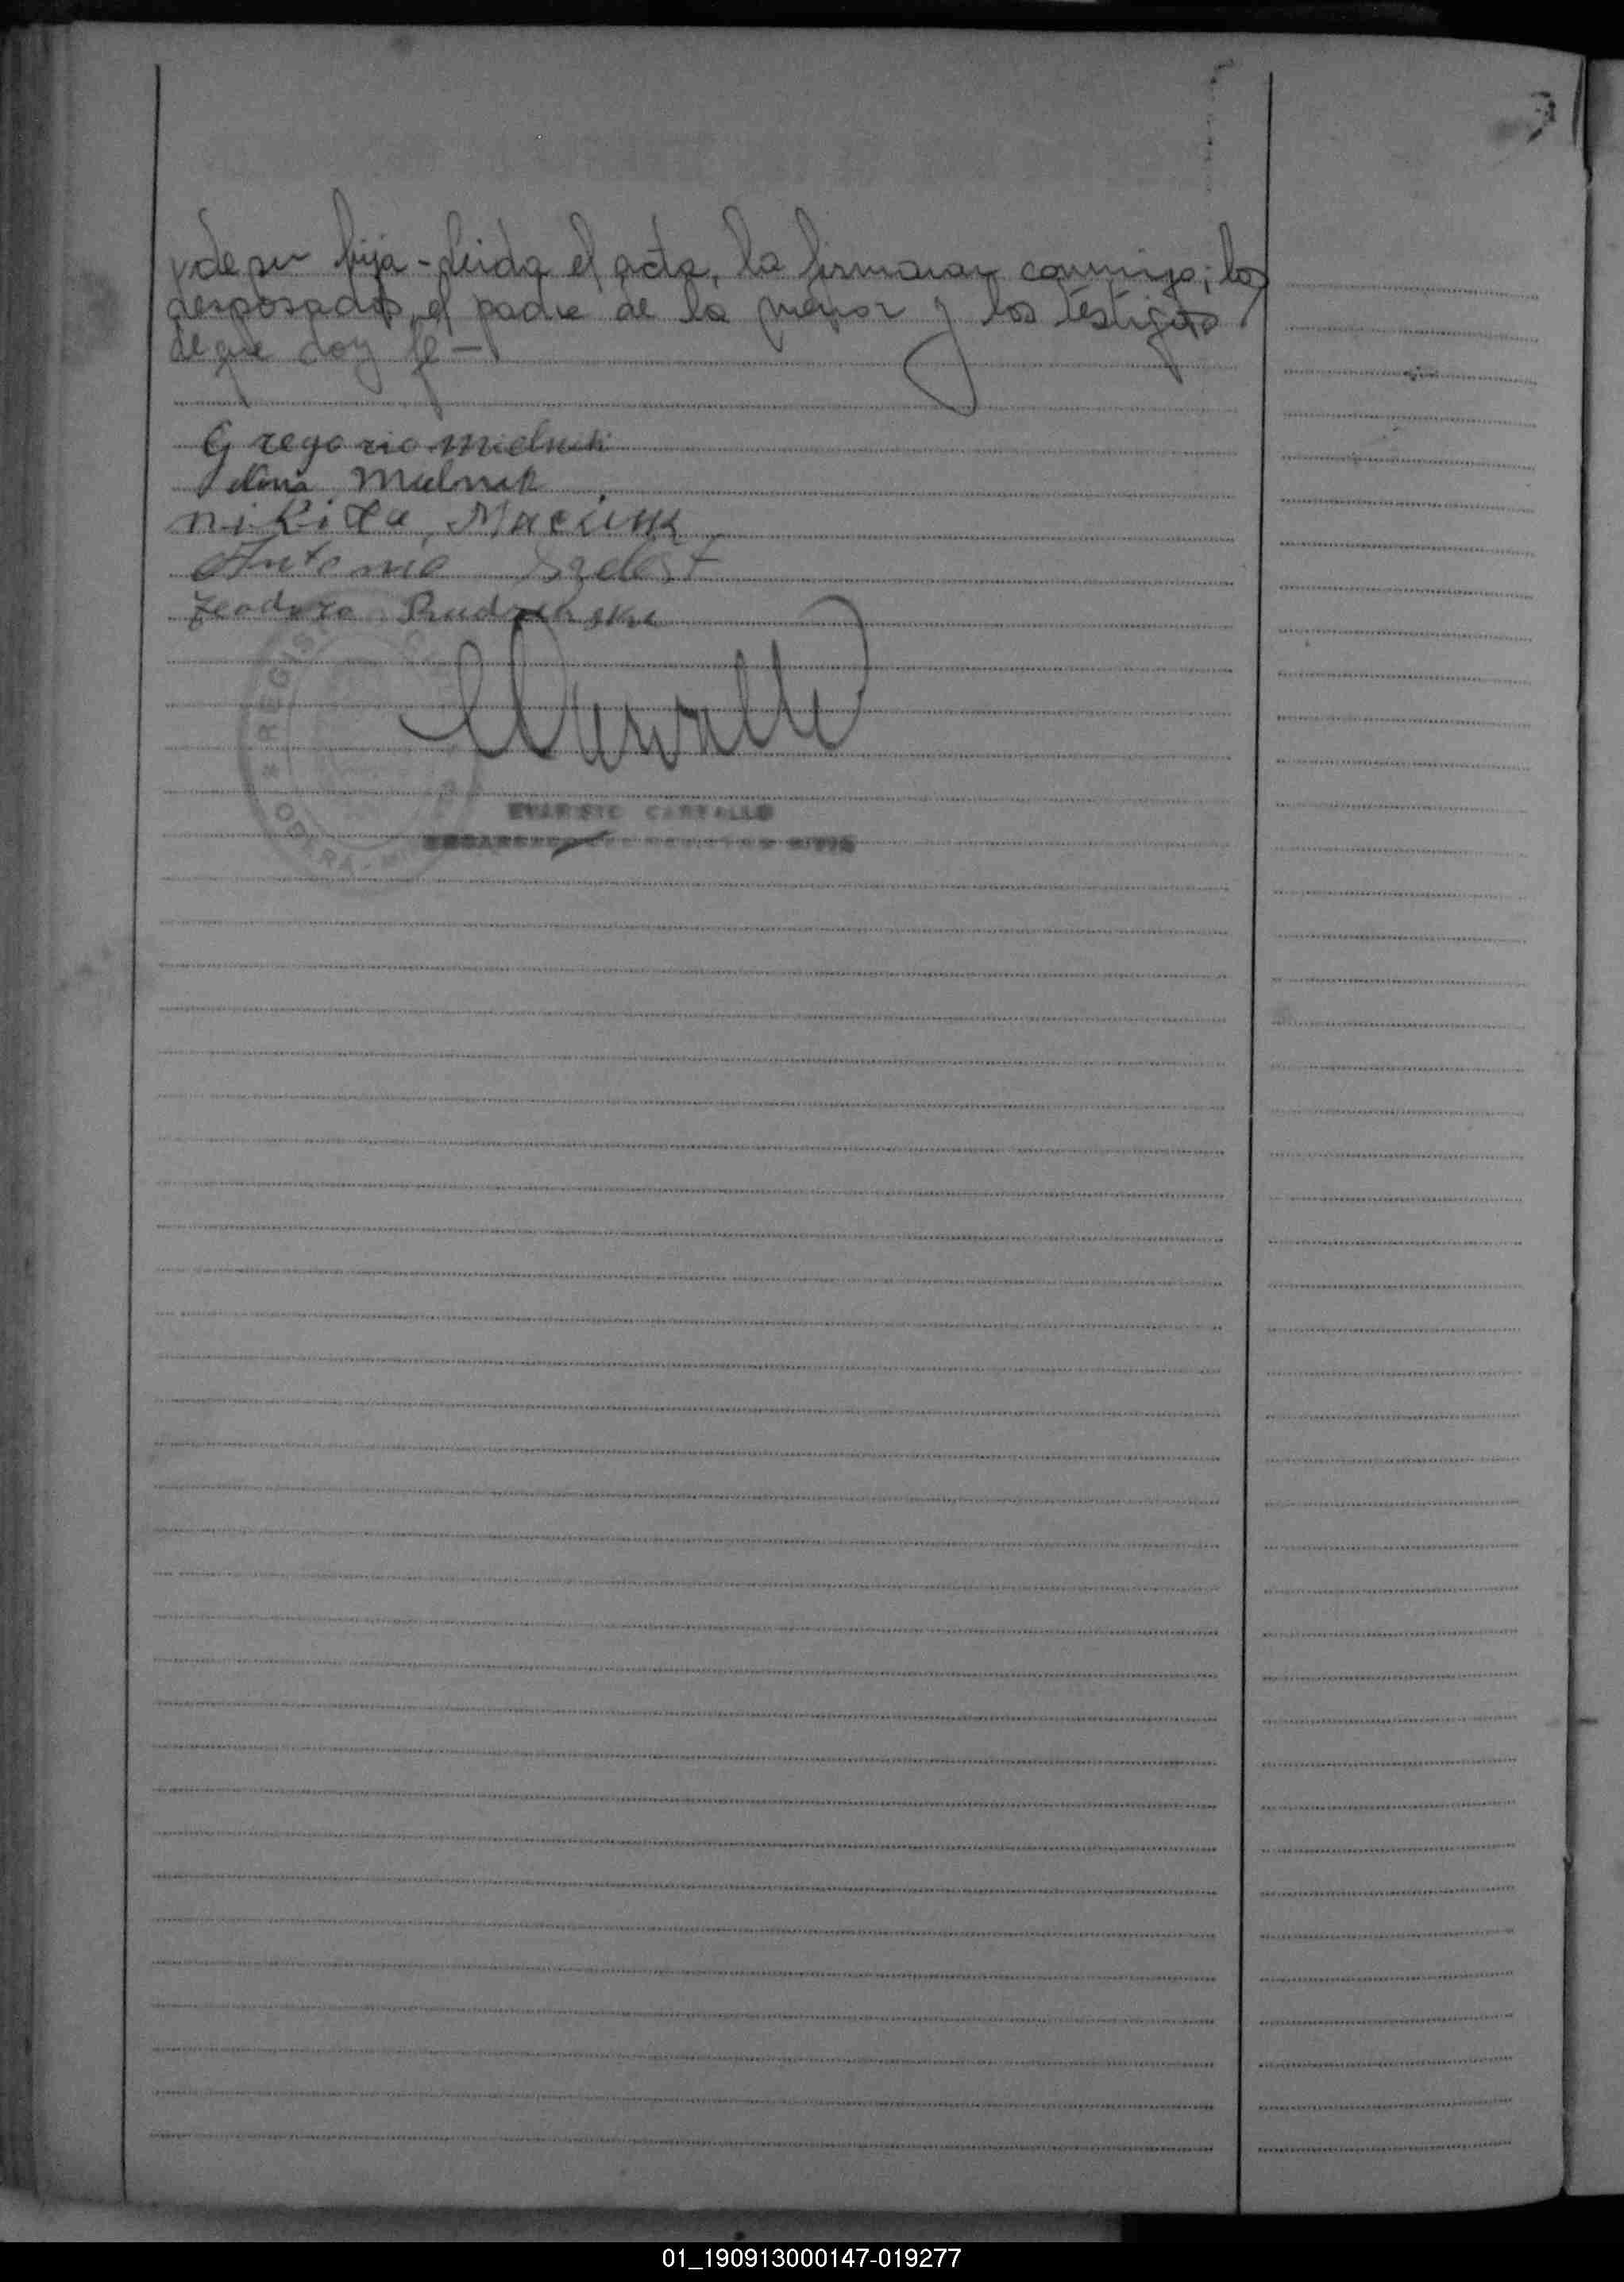 y de su hija - Leida el acta, la firmaron conmigo, los
desposados, el padre de la menor y los testigos
de que doy fe -
Gregorio Mielnik
Mielnik
nikita Maciuk
Antonio Szelest
Teodoro
REGIS
OBERA - MI
EVARISTO CARVALLO
01_190913000147-019277